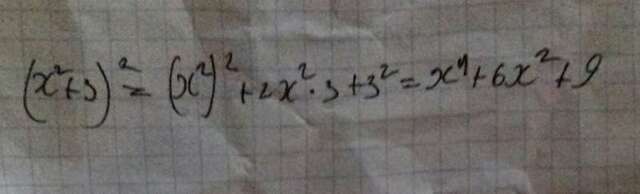 (x²+3)² = (x²)² + 2x²·3 + 3² = x⁴ + 6x² + 9